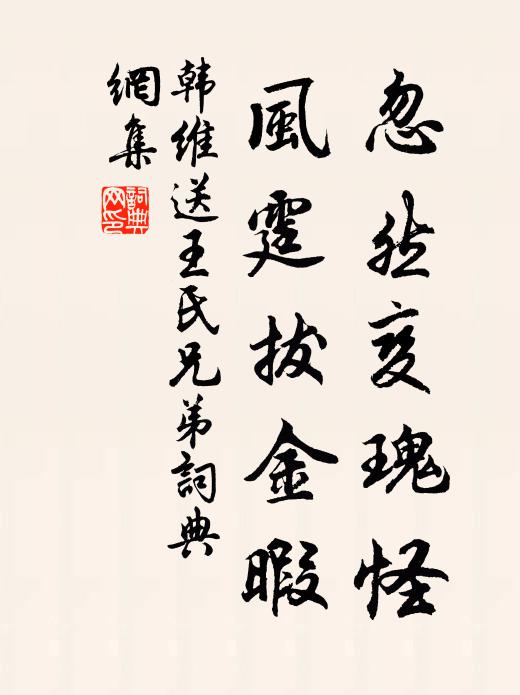 忽然变瑰怪
風霆拔金暇
韩维送王氏兄弟詞典
網集
詞典
网印